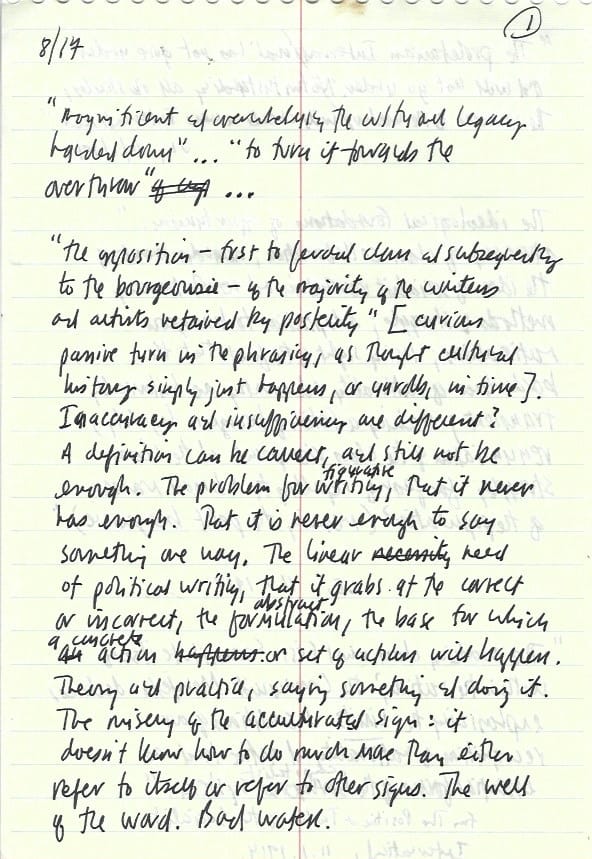 1
8/17
"Magnificent and overwhelming the cultural legacy
handed down"... "to turn it towards the
overthrow" ...
"the opposition – first to feudal class and subsequently
to the bourgeoisie – of the majority of the writers
and artists retained by posterity" [curious
passive turn in the phrasing, as though cultural
history simply just happens, or unrolls, in time].
Inaccuracy and insufficiency are different?
A definition can be correct, and still not be
figurative
enough. The problem for writing, that it never
has enough. That it is never enough to say
something one way. The linear necessity need
of political writing, that it grabs at the correct
abstract
or incorrect, the formulation, the base for which
a concrete
an action happens or set of actions will happen.
Theory and practice, saying something and doing it.
The misery of the acculturated sign: it
doesn't know how to do much more than either
refer to itself or refer to other signs. The well
of the word. Bad water.